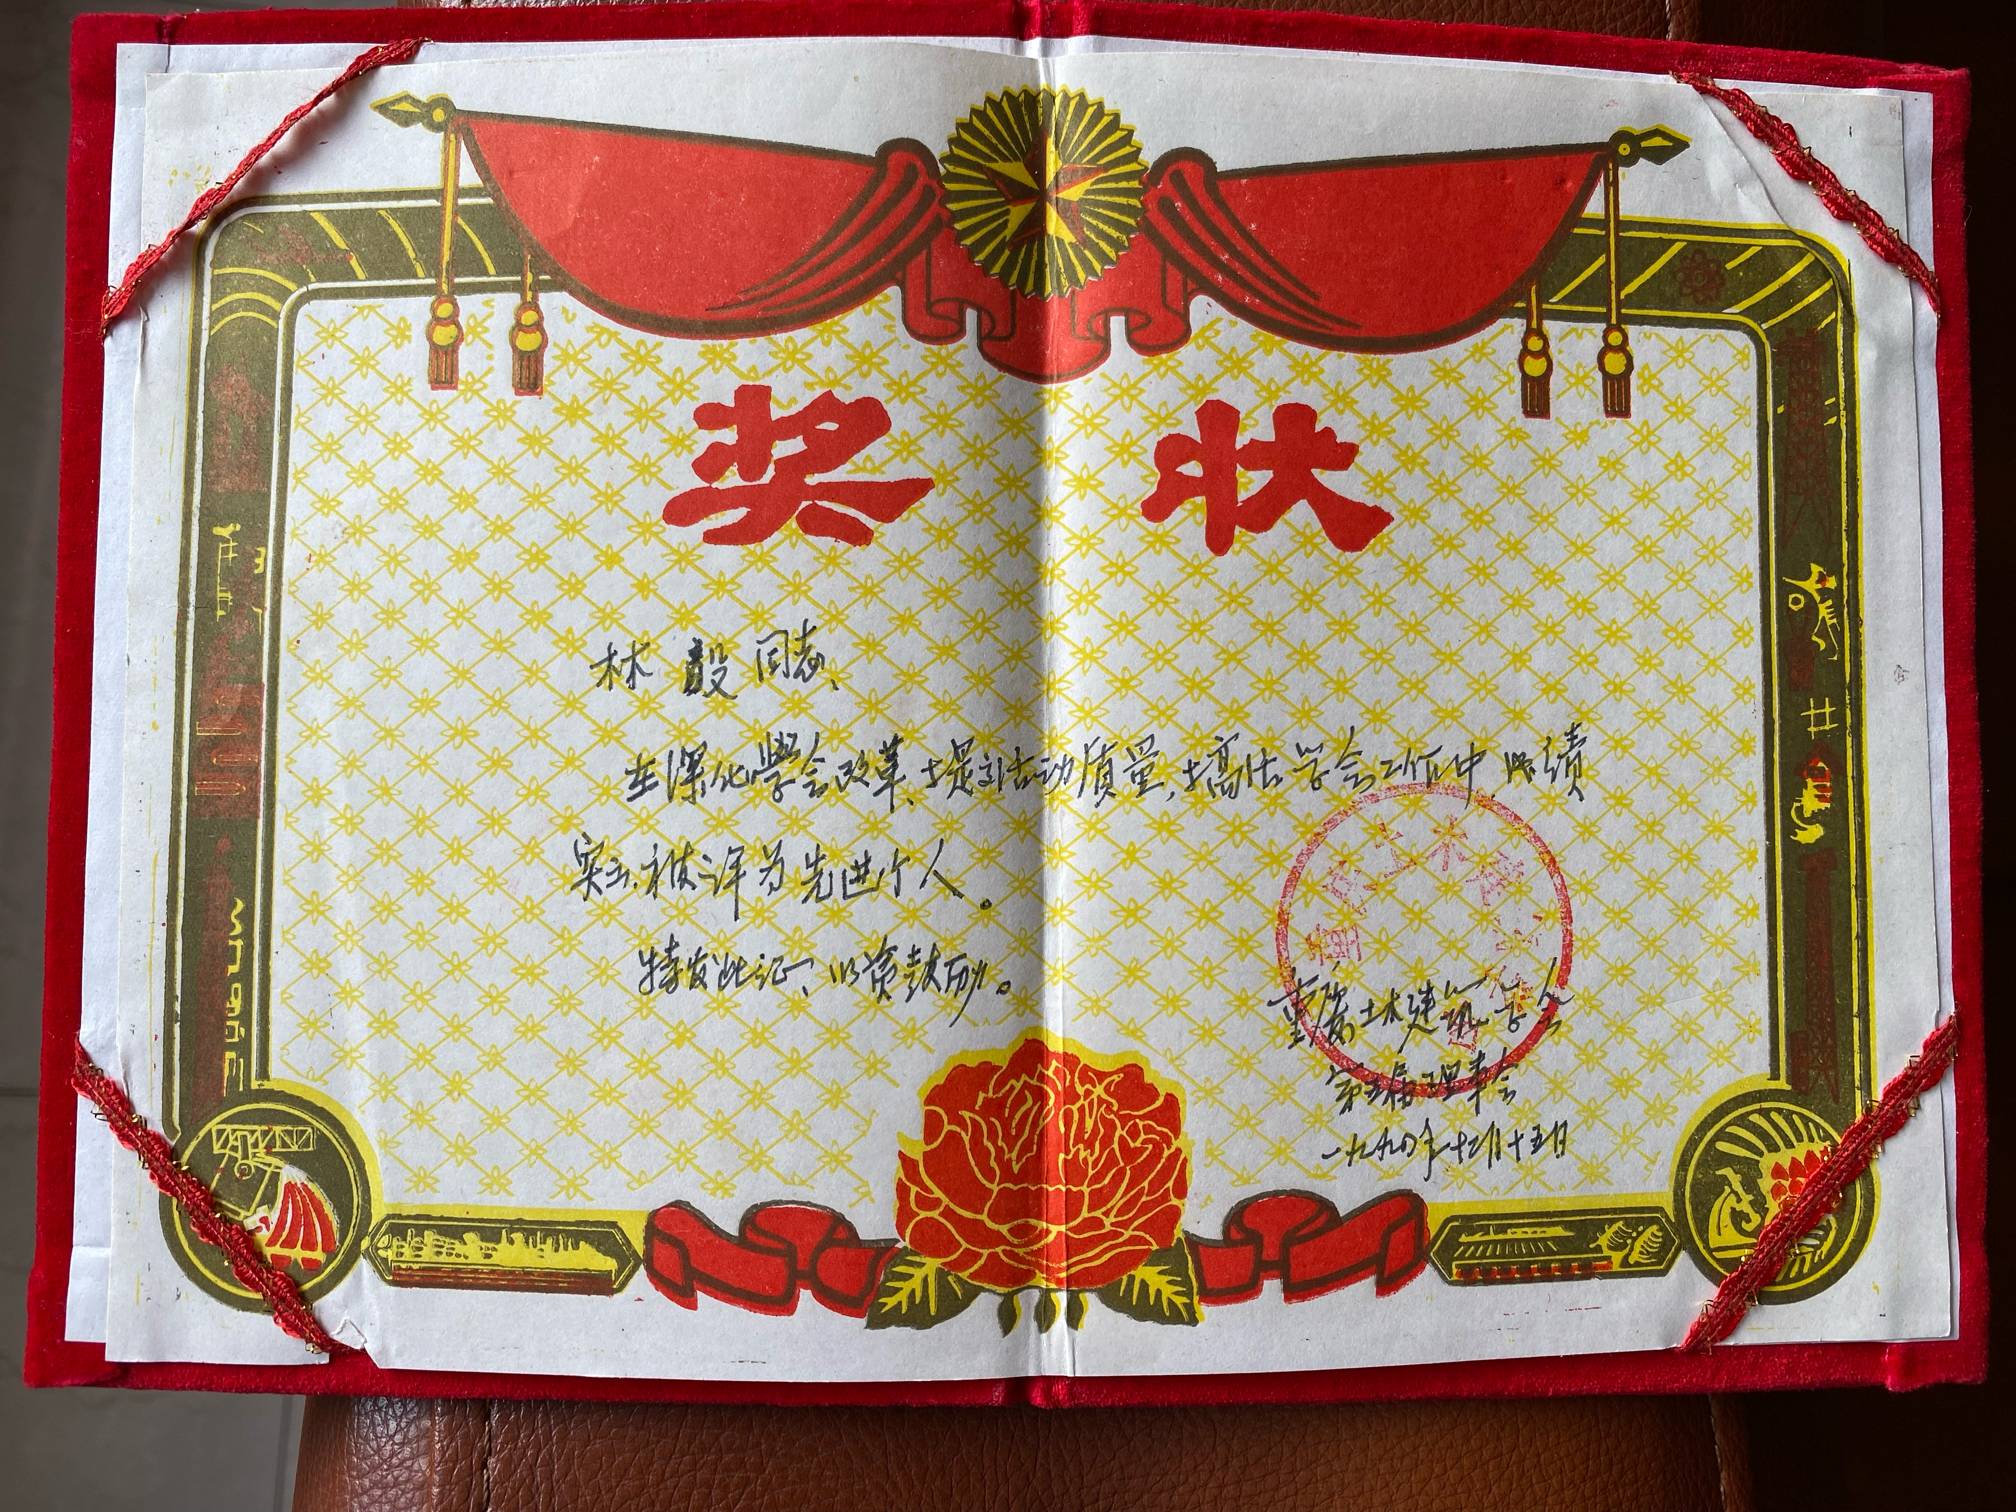 奖 状
林毅同志、
在深化学会改革、提高活动质量,搞活学会工作中,成绩
突出、被评为先进个人。
特发此证、以资鼓励。
重庆土木建筑学会
第五届理事会
一九九四年十二月十五日